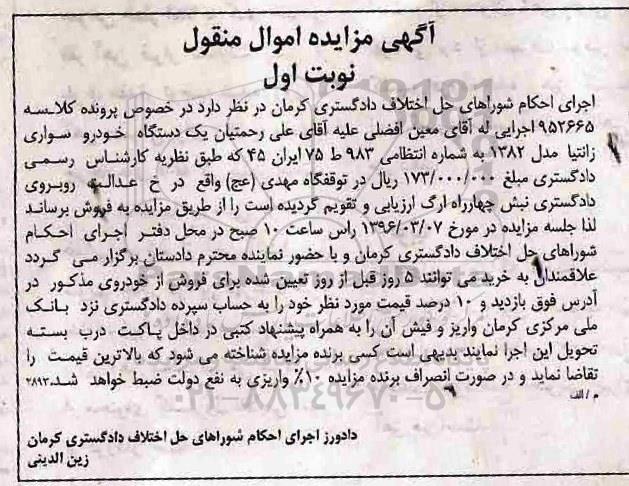 آگهی مزایده اموال منقول
نوبت اول
اجرای احکام شوراهای حل اختلاف دادگستری کرمان در نظر دارد در خصوص پرونده کلاسه
۹۵۲۶۶۵ اجرایی له آقای معین افضلی علیه آقای علی رحمتیان یک دستگاه خودرو سواری
زانتیا مدل ۱۳۸۲ به شماره انتظامی ۹۸۳ ط ۷۵ ایران ۴۵ که طبق نظریه کارشناس رسمی
دادگستری مبلغ ۱۷۳/۰۰۰/۰۰۰ ریال در توقفگاه مهدی (عج) واقع در خ عدالت روبروی
دادگستری نبش چهارراه ارگ ارزیابی و تقویم گردیده است را از طریق مزایده به فروش برساند
لذا جلسه مزایده در مورخ ۱۳۹۶/۰۳/۰۷ راس ساعت ۱۰ صبح در محل دفتر اجرای احکام
شوراهای حل اختلاف دادگستری کرمان و با حضور نماینده محترم دادستان برگزار می گردد
علاقمندان به خرید می توانند ۵ روز قبل از روز تعیین شده برای فروش از خودروی مذکور در
آدرس فوق بازدید و ۱۰ درصد قیمت مورد نظر خود را به حساب سپرده دادگستری نزد بانک
ملی مرکزی کرمان واریز و فیش آن را به همراه پیشنهاد کتبی در داخل پاکت درب بسته
تحویل این اجرا نمایند بدیهی است کسی برنده مزایده شناخته می شود که بالاترین قیمت را
تقاضا نماید و در صورت انصراف برنده مزایده ۱۰٪ واریزی به نفع دولت ضبط خواهد شد.۲۸۹۳
م / الف
۰۲۱-۸۸۳۴۹۶۷۰-۵
دادورز اجرای احکام شوراهای حل اختلاف دادگستری کرمان
زین الدینی